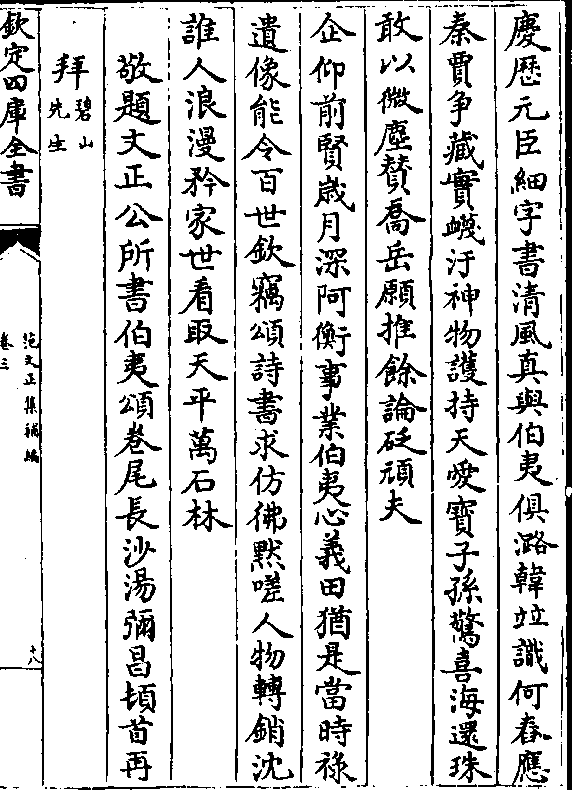 慶厯元臣細字書清風真與伯夷俱潞韓竝識何春應
秦賈争藏實蟣汙神物護持天愛寶子孫驚喜海還珠
敢以微塵賛喬岳願推餘論砭頑夫
企仰前賢歲月深阿衡事業伯夷心義田猶是當時祿
遺像能令百世欽竊頌詩書求仿彿黙嗟人物轉銷沈
誰人浪漫矜家世看取天平萬石林
敬題文正公所書伯夷頌卷尾長沙湯彌昌頓首再
拜碧山先生
欽定四庫全書
范文正集補編
卷三
十八